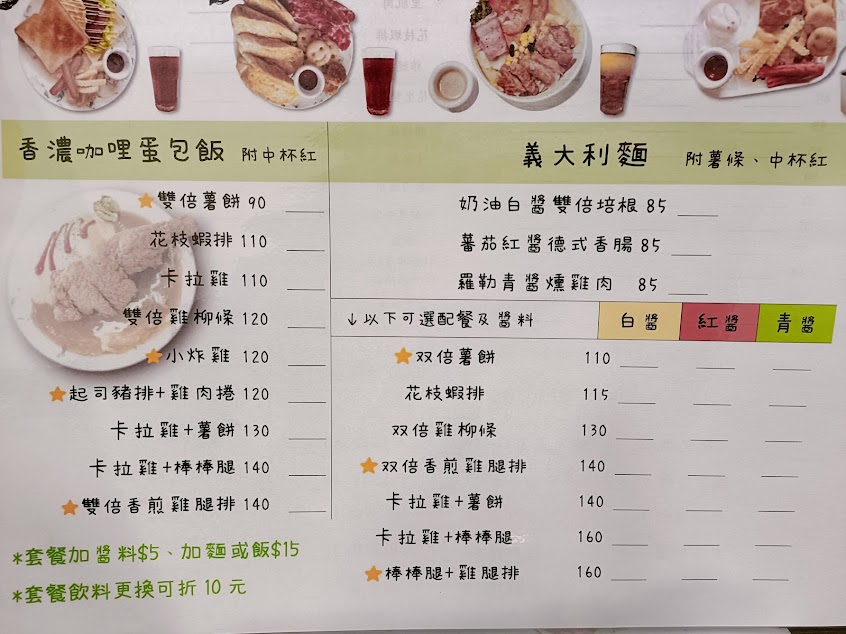 香濃咖哩蛋包飯 附中杯紅
雙倍薯餅 90
花枝蝦排 110
卡拉雞 110
雙倍雞柳條 120
小炸雞 120
起司豬排+雞肉捲 120
卡拉雞+薯餅 130
卡拉雞+棒棒腿 140
雙倍香煎雞腿排 140
*套餐加醬料$5、加麵或飯$15
*套餐飲料更換可折 10 元
義大利麵 附薯條、中杯紅
奶油白醬雙倍培根 85
蕃茄紅醬德式香腸 85
羅勒青醬燻雞肉 85
↓以下可選配餐及醬料 白醬 紅醬 青醬
双倍薯餅 110
花枝蝦排 115
双倍雞柳條 130
双倍香煎雞腿排 140
卡拉雞+薯餅 140
卡拉雞+棒棒腿 160
棒棒腿+雞腿排 160